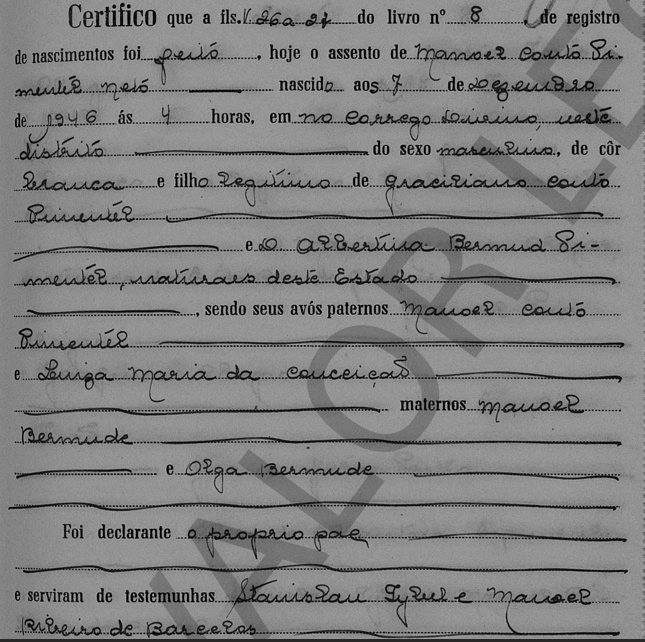 Certifico que a fls. V. 26 a 27 do livro nº 8, de registro
de nascimentos foi feito, hoje o assento de Manoel Couto Pi-
mentel Neto nascido aos 7 de Dezembro
de 1946 ás 4 horas, em no Corrego, neste
distrito do sexo masculino, de côr
branca e filho legitimo de Graciliano Couto
Pimentél
e D Albertina Bermud Pi-
mentél, naturaes deste Estado
, sendo seus avós paternos Manoel Couto
Pimentél
e Luiza Maria da Conceição
maternos Manoel
Bermude
e Olga Bermude
Foi declarante o proprio pae
e serviram de testemunhas Stanislau e Manoel
Ribeiro de Barcelos
VALOR LEG